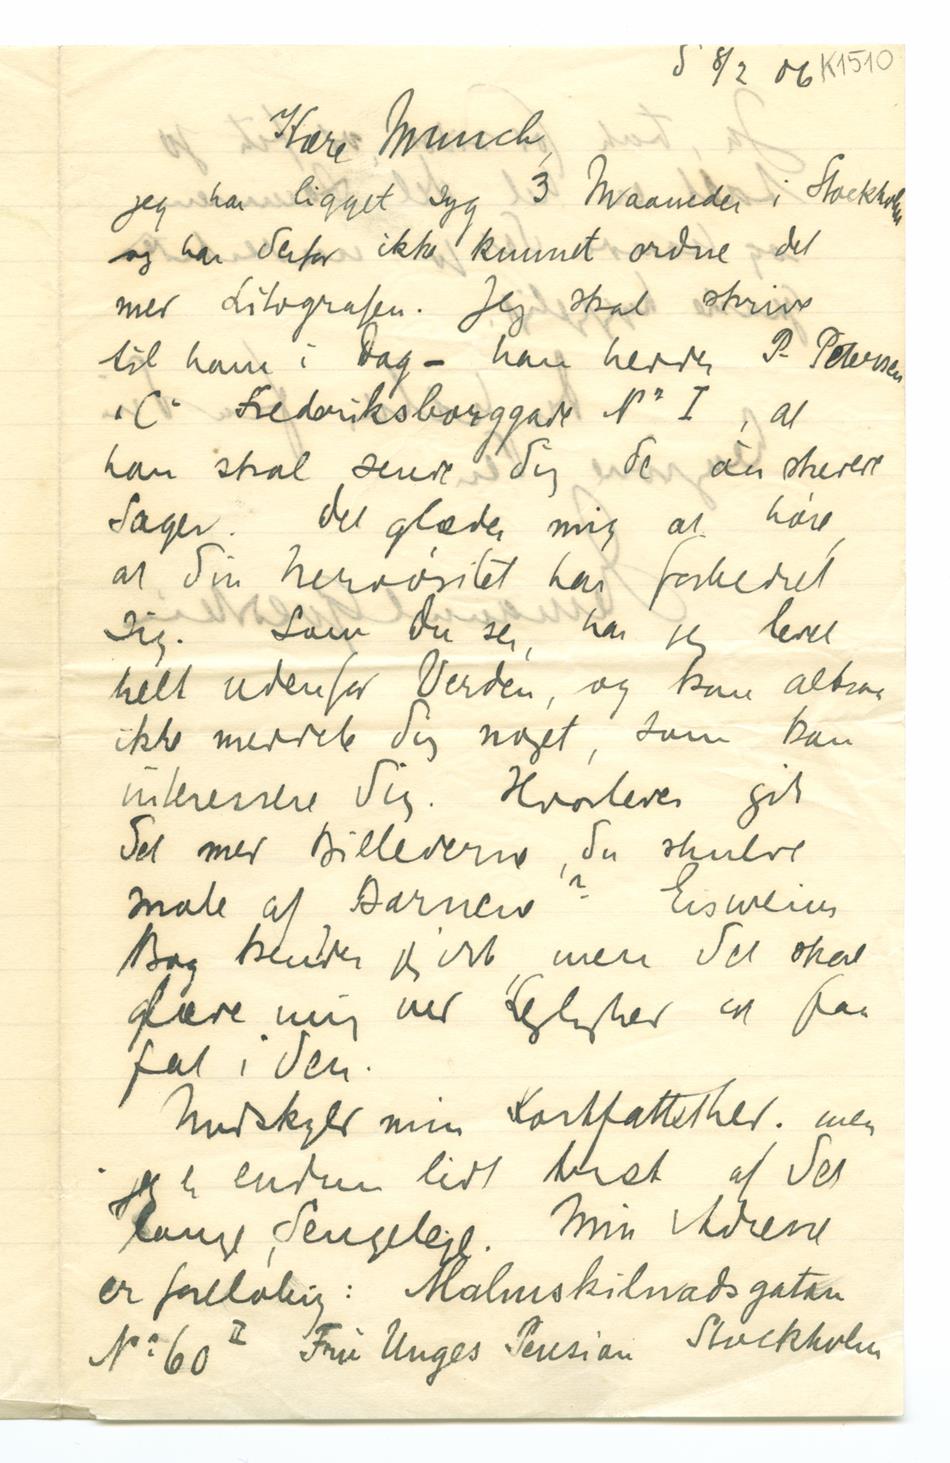 d 8/2 06 K1510
Kære Munch,
jeg har ligget syg 3 Maaneder i Stockholm
og har derfor ikke kunnet ordne det
med Litografen. Jeg skal skrive
til ham i Dag – han hedder P. Petersen
"C" Frederiksborggade N° I, at
han skal sende dig de ønskede
Sager. Det glæder mig at høre,
at din Nervøsitet har forbedret
sig. Som du ser, har jeg levet
helt udenfor Verden, og kan altsaa
ikke meddele dig noget, som kan
interessere dig. Hvorledes gik
det med Billederne, du skulde
male af Børnene? Eisweins
Bog kender jeg ikke, men det skal
glæde mig ved Lejlighed at faa
fat i den.
Undskyld min Kortfattethed. men
jeg er endnu lidt træt af det
lange Sengeleje. Min Adresse
er foreløbig: Malmskilnadsgatan
N°: 60 II Fru Unges Pension Stockholm